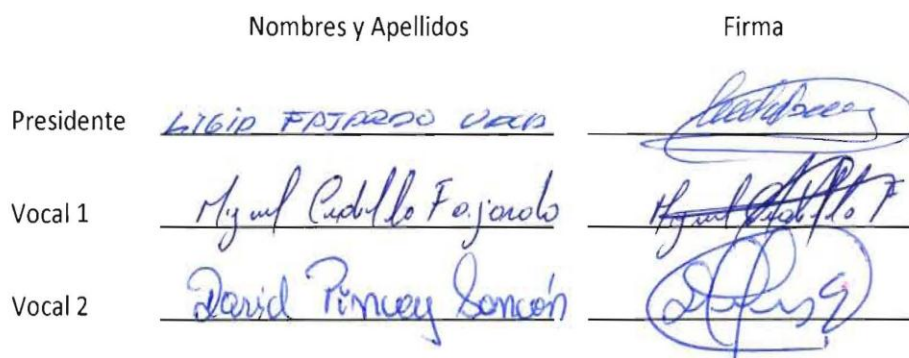 Nombres y Apellidos Firma
Presidente LIGIA FAJARDO VACA
Vocal 1 Miguel Cedillo Fajardo Miguel Cedillo F
Vocal 2 David Pincay Sancón